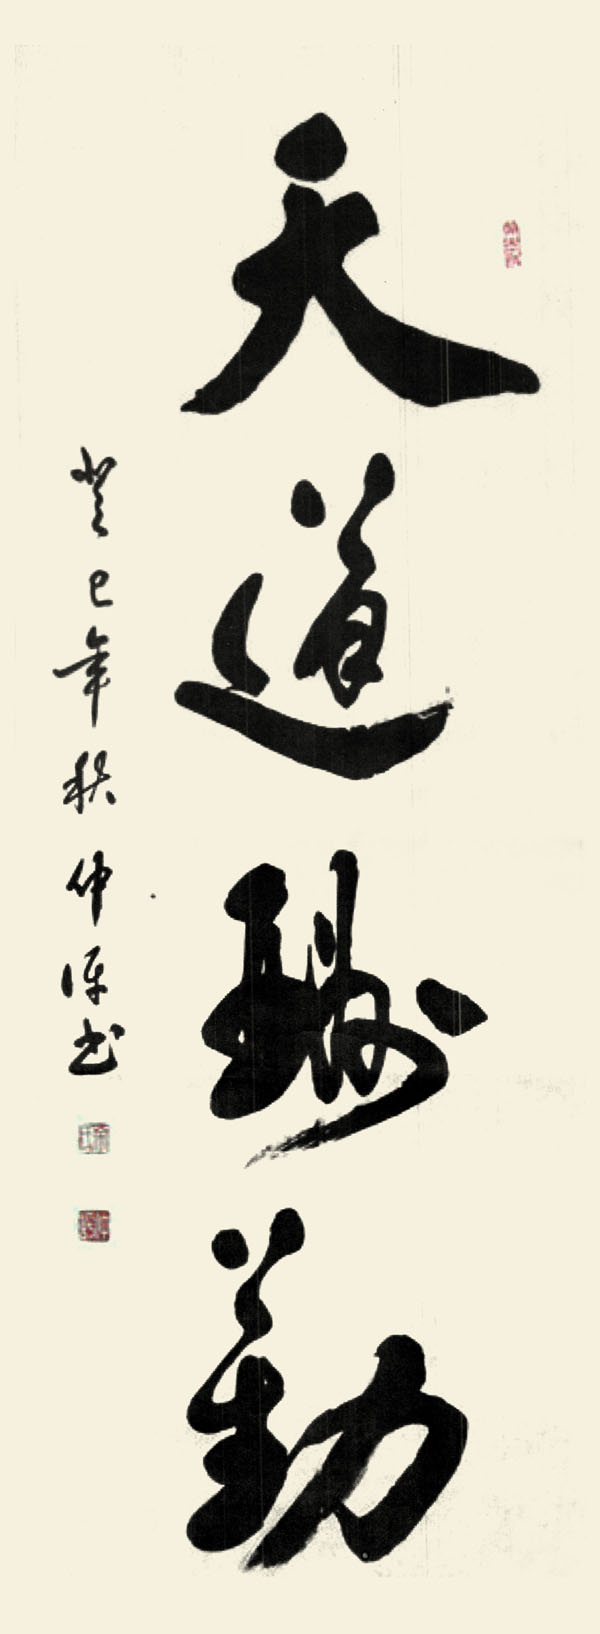 天道酬勤
癸巳年秋仲泽书